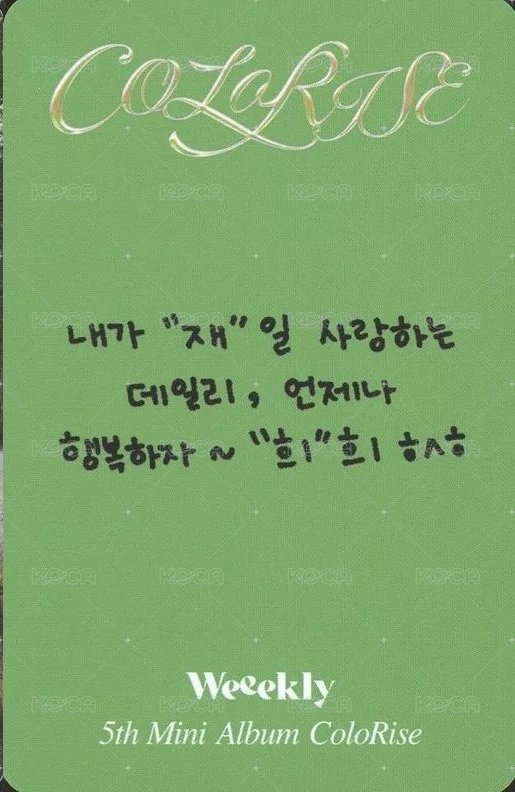 COLORISE
내가 "재"일 사랑하는
데일리, 언제나
행복하자 ~ "희"희 ㅎㅅㅎ
Weeekly
5th Mini Album ColoRise
KOCA